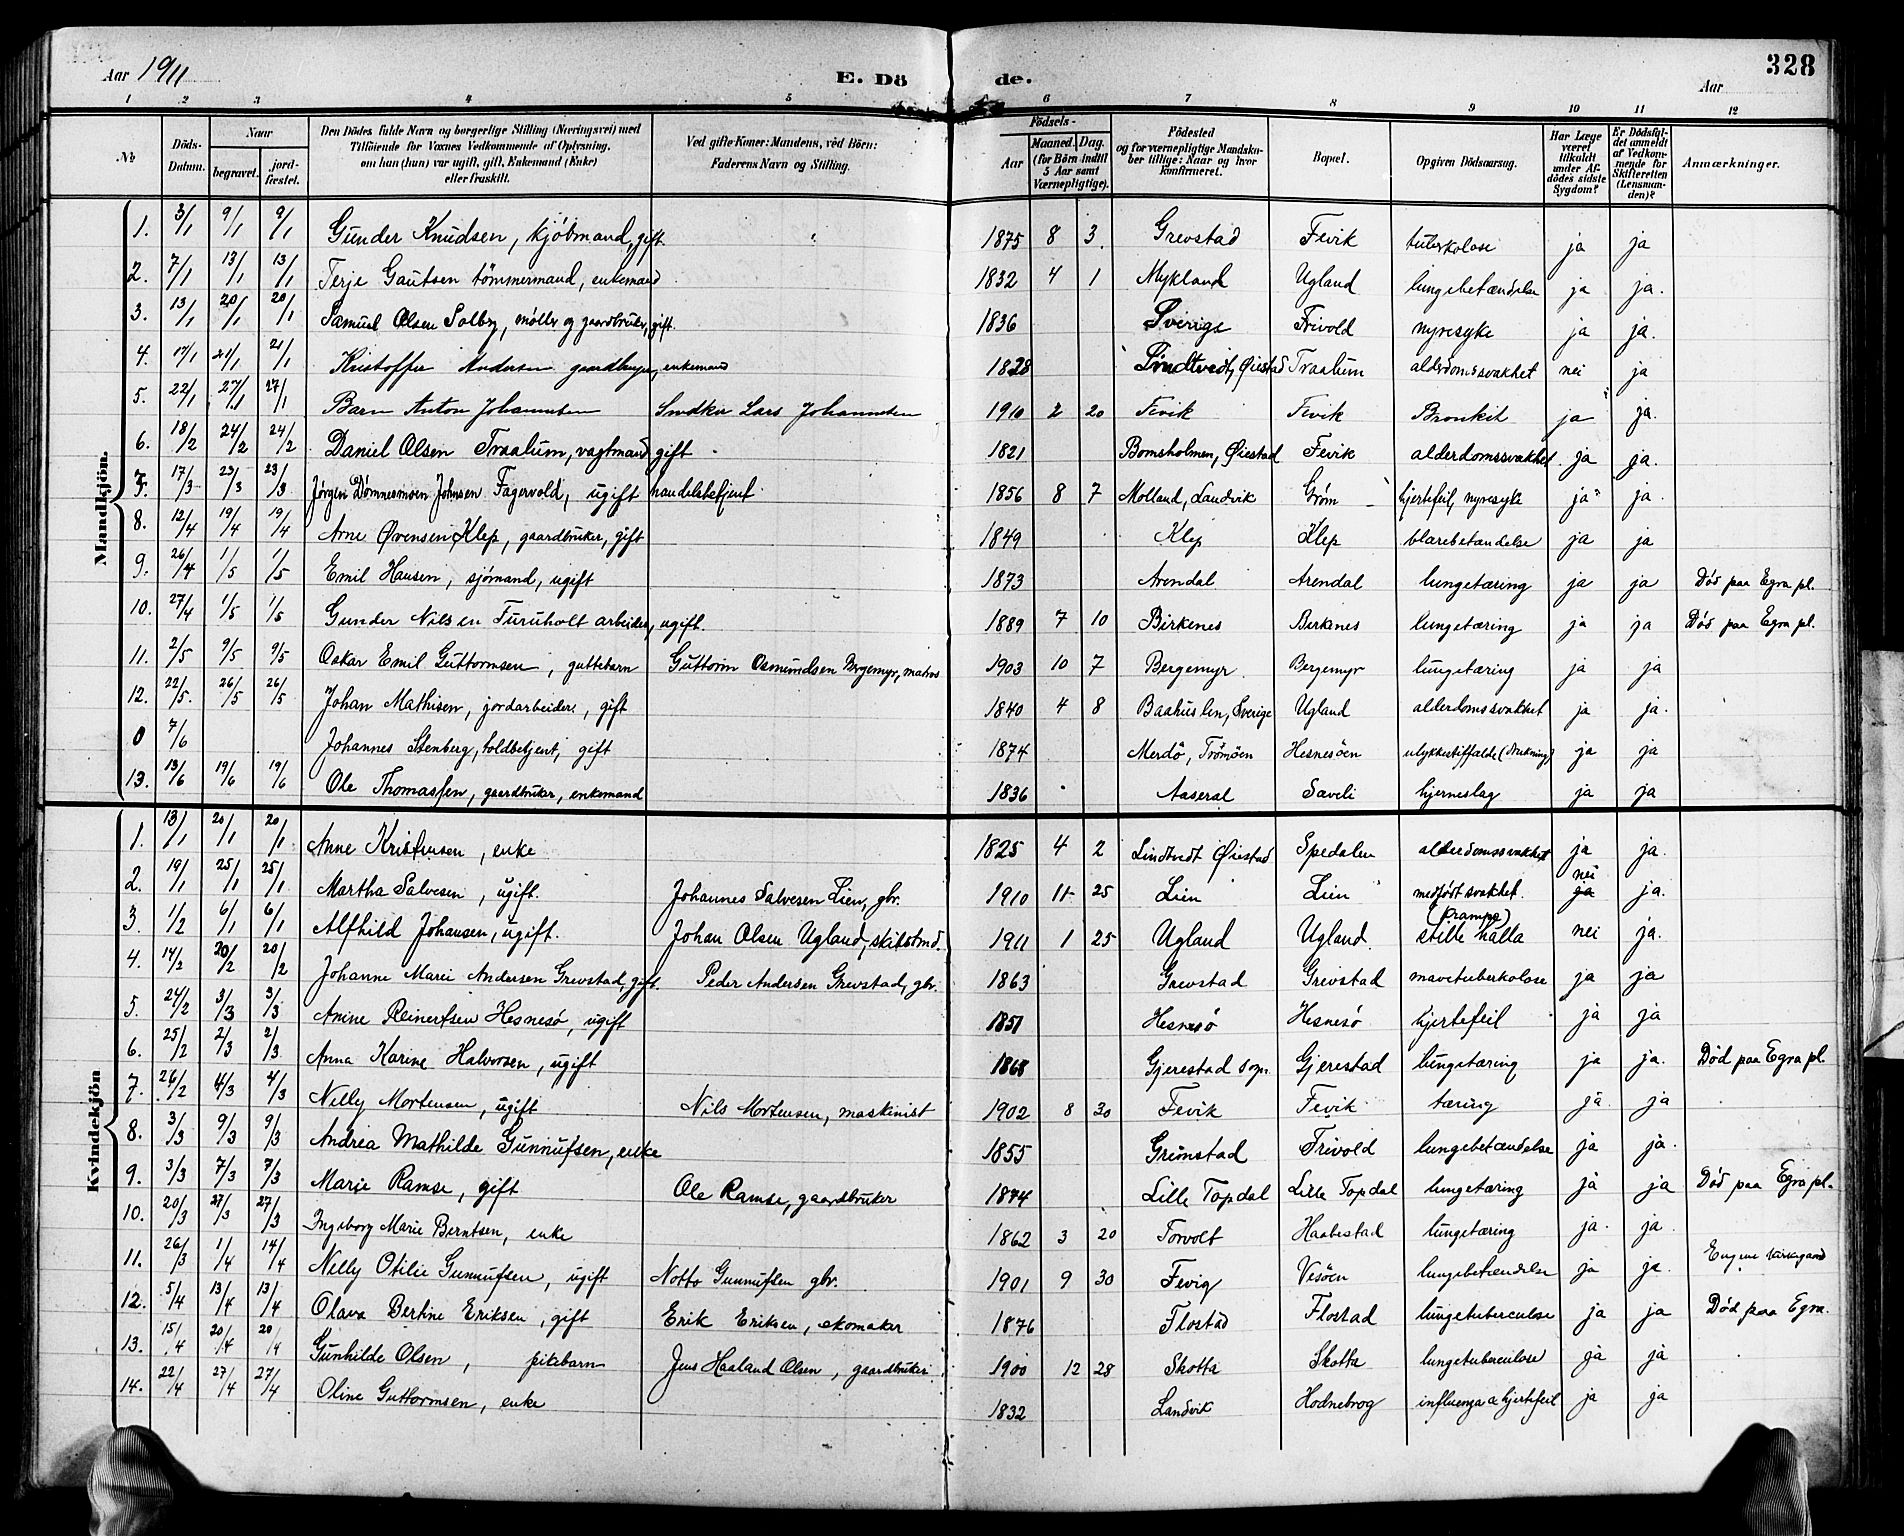 328
Aar 1911 E. Dö de. Aar
1 2 3 4 5 6 7 8 9 10 11 12
No Döds-Datum. Naar begravet. jord-fæstet. Den Dödes fulde Navn og borgerlige Stilling (Næringsvei) med Tilföiende for Voxnes Vedkommende af Oplysning. om han (hun) var ugift, gift, Enkemand (Enke) eller fraskilt. Ved gifte Koner: Mandens, ved Börn: Faderens Navn og Stilling. Födsels- Aar Maaned. Dag. (for Börn indtil 5 Aar samt Værnepligtige). Födested og for værnepligtige Mandska-ber tillige: Naar og hvor konfirmeret. Bopæl. Opgiven Dödsaarsag. Har Læge været tilkaldt under Af-dödes sidste Sygdom? Er Dödsfal-det anmeldt af Vedkom-mende for Skifteretten (Lensman-den)? Anmærkninger.
Mandkjön.
1. 3/1 9/1 9/1 Gunder Knudsen, kjöbmand, gift 1875 8 3 Grevstad Fevik tuberkolose ja ja
2. 7/1 13/1 13/1 Terje Gautsen tömmermand, enkemand 1832 4 1 Mykland Ugland lungebetændelse ja ja.
3. 13/1 20/1 20/1 Samuel Olsen Solby, møller og gaardbruker, gift 1836 Sverige Frivold nyresyke ja ja.
4. 17/1 21/1 21/1 Kristoffer Andersen gaardbruger, enkemand 1828 Lindtvedt, Øiestad Traalum alderdomssvakhet nei ja
5. 22/1 27/1 27/1 Barn Anton Johannsen Snedker Lars Johannsen 1910 2 20 Fevik Fevik Bronkit ja ja.
6. 18/2 24/2 24/2 Daniel Olsen Traalum, vagtmand gift 1821 Bomsholmen, Øiestad Fevik alderdomssvakhet ja ja.
7. 17/3 23/3 23/3 Jørgen Johnsen Fagervold, ugift handelsbetjent 1856 8 7 Molland, Landvik Grøm hjertefeil, nyresyke ja ja.
8. 12/4 19/4 19/4 Arne Øvensen Klep, gaardbruker, gift 1849 Klep Klep blærebetændelse ja ja
9. 26/4 1/5 1/5 Emil Hansen, sjömand, ugift 1873 Arendal Arendal lungetæring ja ja Död paa Egra pl.
10. 27/4 1/5 1/5 Gunder Nilsen Furuholt arbeider, ugift. 1889 7 10 Birkenes Birkenes lungetæring ja ja Död paa Egra pl.
11. 2/5 9/5 9/5 Oskar Emil Guttormsen, guttebarn Guttorm Osmundsen Bergemyr, matros 1903 10 7 Bergemyr Bergemyr lungetæring ja ja
12. 22/5. 26/5 26/5 Johan Mathisen, jordarbeider, gift 1840 4 8 Baahuslen, Sverige Ugland alderdomssvakhet ja ja.
0 7/6 Johannes Stenberg, toldbetjent, gift 1874 Merdö, Tromöen Hesnesöen ulykkestilfælde (drukning) ja ja
13. 13/6 19/6 19/6 Ole Thomassen, gaardbruker, enkemand 1836 Aaseral Saveli hjerneslag ja ja
Kvindekjön
1. 13/1 20/1 20/1 Anne Kristensen, enke 1825 4 2 Lindtvedt Øiestad Spedalen alderdomssvakhet ja ja.
2. 19/1 25/1 25/1 Martha Salvesen, ugift. Johannes Salvesen Lien, gbr. 1910 11 25 Lien Lien medfödt svakhet. nei ja ja.
3. 1/2 6/1 6/1 Alfhild Johansen, ugift. Johan Olsen Ugland, skibstmd. 1911 1 25 Ugland Ugland. (krampe) stille halla nei ja.
4. 14/2 20/2 20/2 Johanne Marie Andersen Grevstad, gift. Peder Andersen Grevstad, gbr. 1863 Grevstad Grevstad mavetuberkolose ja ja
5. 24/2 3/3 3/3 Anine Reinertsen Hesnesø, ugift 1851 Hesnesø Hesnesø hjertefeil ja ja
6. 25/2 2/3 2/3 Anna Karine Halvorsen, ugift 1868 Gjerestad sogn Gjerestad lungetæring ja ja. Død paa Egra pl.
7. 26/2 4/3 4/3 Nelly Mortensen, ugift Nils Mortensen, maskinist 1902 8 30 Fevik Fevik tæring ja ja
8. 3/3 9/3 9/3 Andrea Mathilde Gunnufsen, enke 1855 Grimstad Frivold lungebetændelse ja ja.
9. 3/3 7/3 7/3 Marie Ramse, gift Ole Ramse, gaardbruker 1874 Lille Topdal Lille Topdal lungetæring ja ja Död paa Egra pl.
10. 20/3 27/3 27/3 Ingeborg Marie Berntsen, enke 1862 3 20 Torvolt Haabestad lungetæring ja. ja.
11. 26/3 1/4 14/4 Nelly Otilie Gunnufsen, ugift Notto Gunnufsen gbr. 1901 9 30 Fevig Vesöen lungebetændelse ja ja. Engene kirkegaard
12. 5/4 13/4 13/4 Olava Bertine Eriksen, gift Erik Eriksen, skomaker 1876 Flostad Flostad lungetuberculose ja ja Död paa Egra.
13. 15/4 20/4 20/4 Gunhilde Olsen, pikebarn Jens Haaland Olsen, gaardbruker 1900 12 28 Skotta Skotta lungetuberculose ja ja
14. 22/4 27/4 27/4 Oline Guttormsen, enke 1832 Landvik Hodnebrog influenza & hjertefeil ja ja